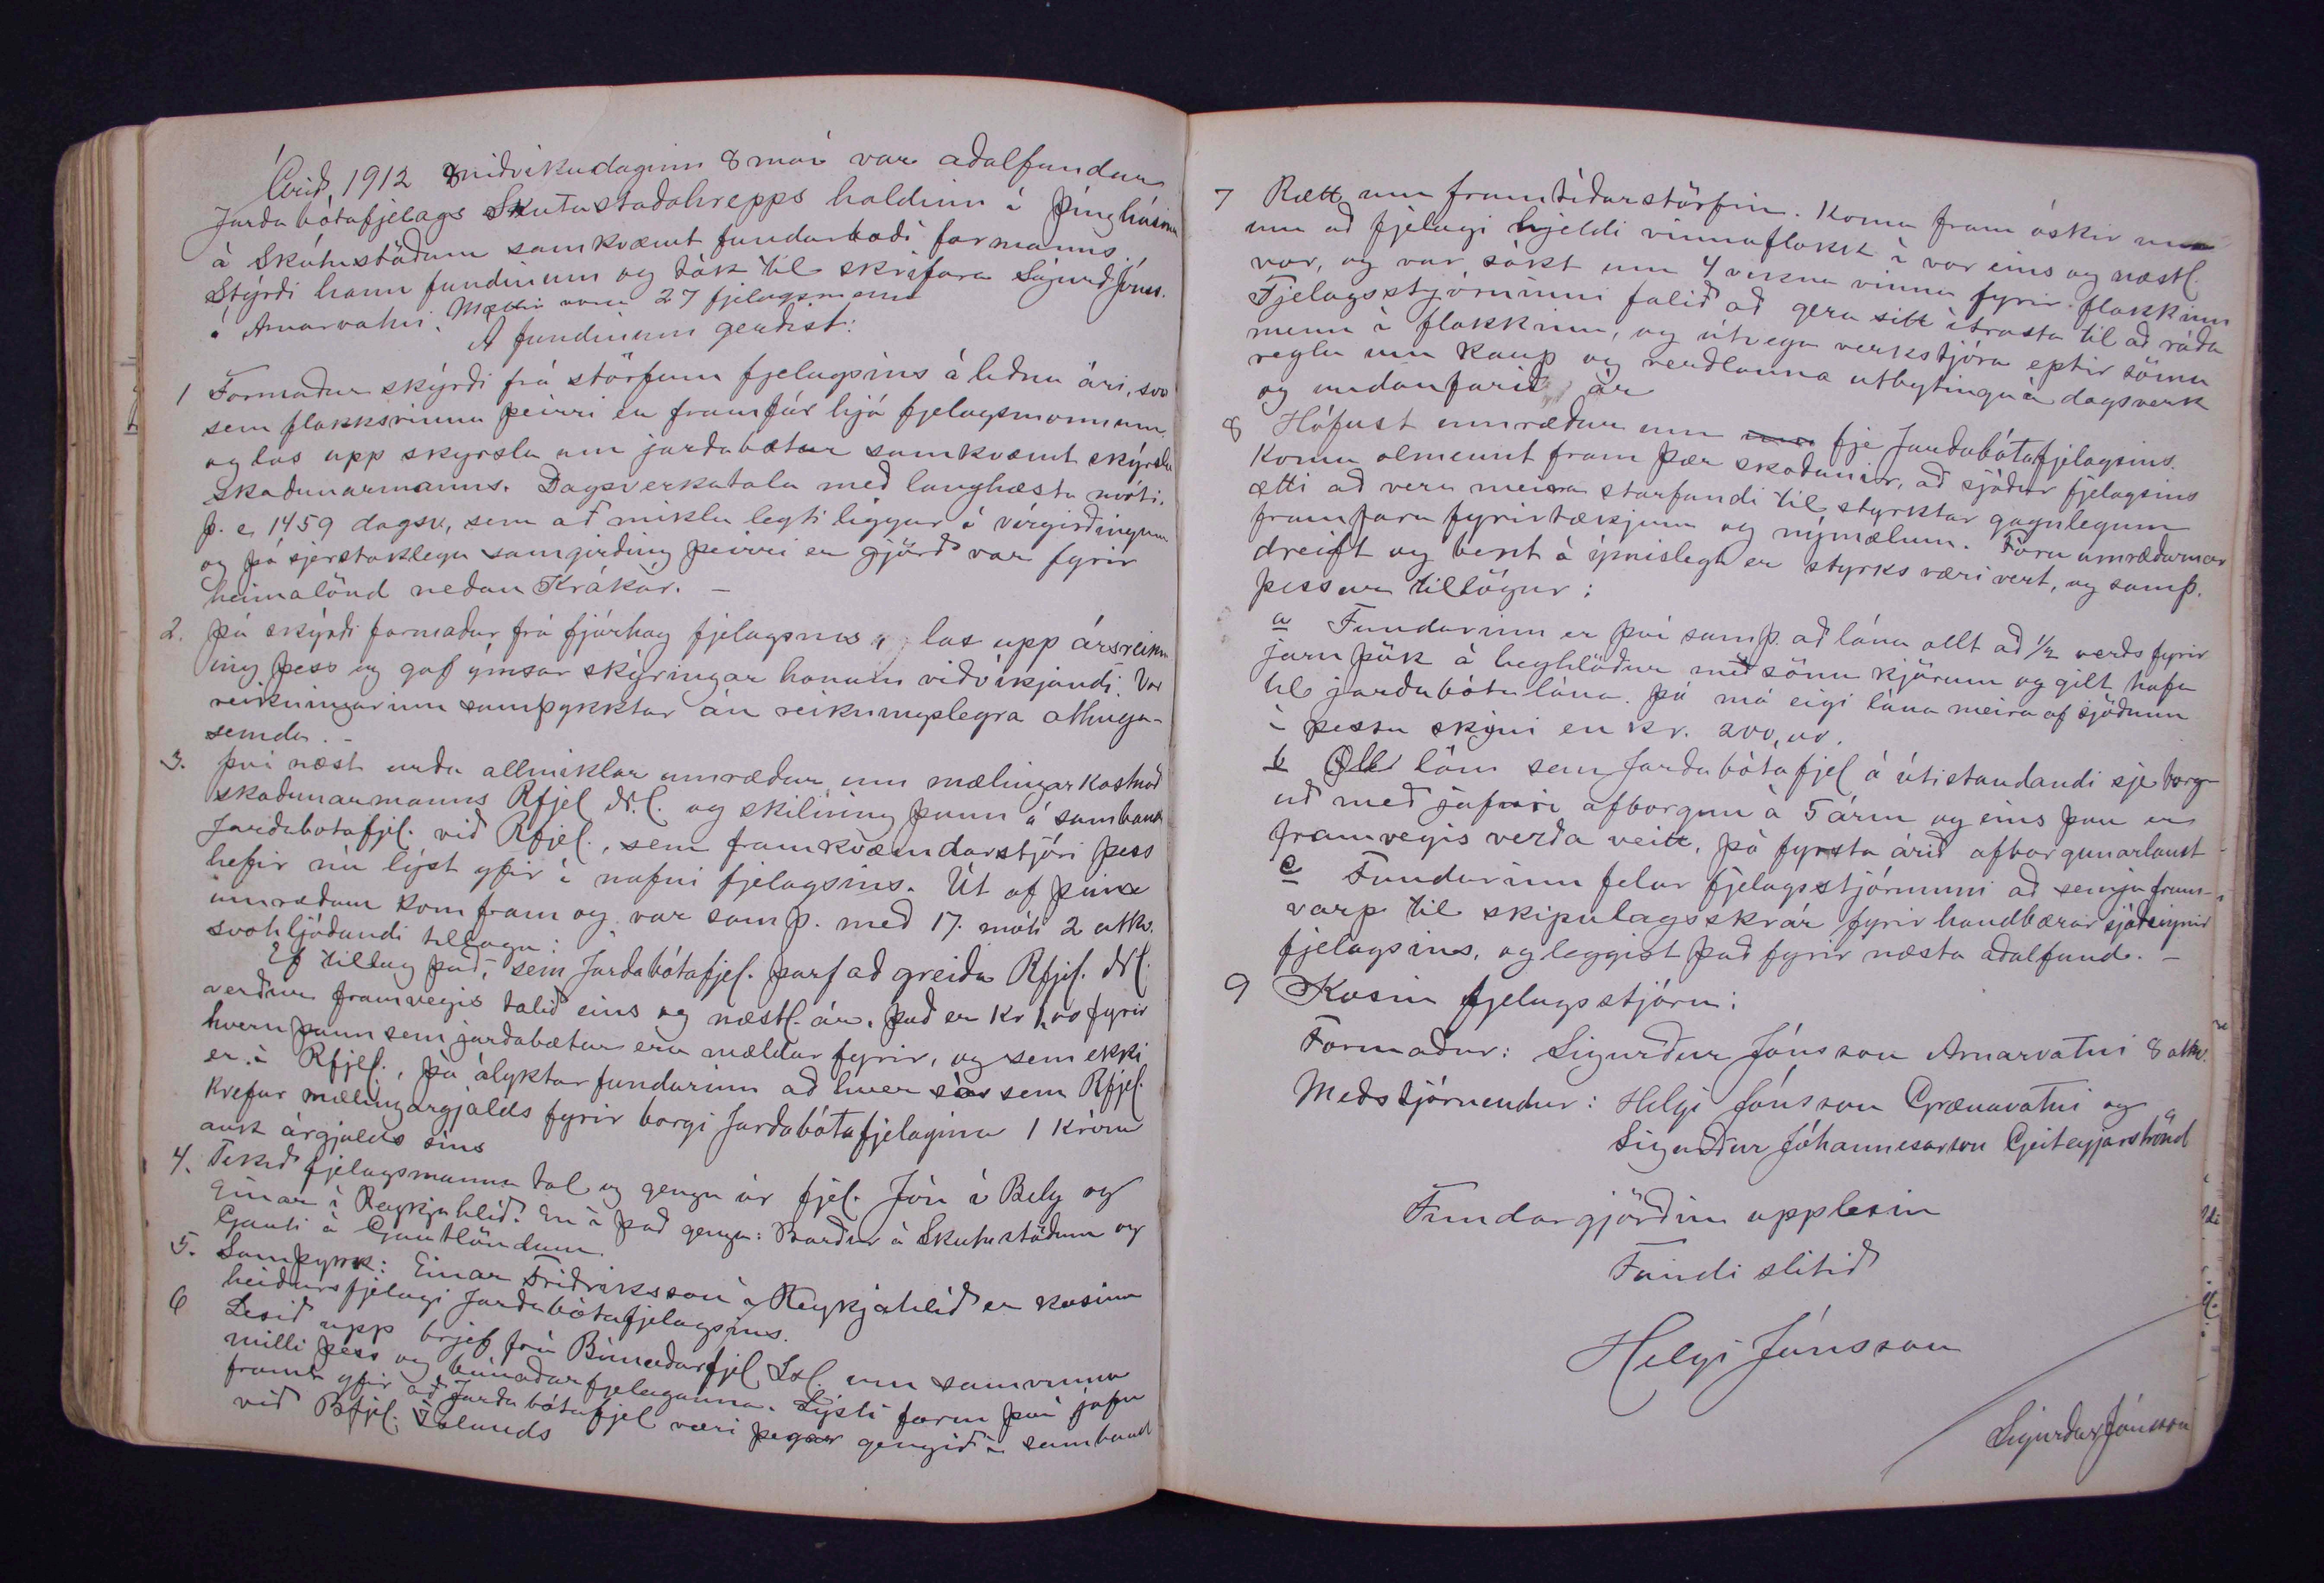 Árið 1912 miðvikudaginn 8 maí var aðalfundur
Jarðabótafjelags Skutustaðahrepps haldinn í þinghúsinu
á Skútustöðum samkvæmt fundarboði formanns.
Stýrði hann fundinum og tók til skrifara Sigurð Jónss.
á Arnarvatni. Mættir voru 27 fjelagsmenn
Á fundinum gerðist:
1 Formaður skýrði frá störfum fjelagsins á liðnu ári, svo
sem flokksvinnu þeirri er framfór hjá fjelagsmönnum
og las upp skyrslu um jarðabætur samkvæmt skýrslu
Skoðunarmanns. Dagsverkatala með langhæsta móti.
þ. e. 1459 dagsv, sem að miklu leyti liggur í vírgirðingum
og þó sjerstaklega samgirðing þeirri er gjörð var fyrir
heimalönd neðan Krákár. –
2. Þá skýrði formaður frá fjárhag fjelagsins og las upp ársreikn
ing þess og gaf ýmsar skýringar honum viðvíkjandi. Var
reikningurinn samþykktur án reikningslegra athuga-
semda. –
3. Því næst urðu allmiklar umræður um mælingarkostnað
skoðunarmanns Rfjel Nl. og skilning þann á sambandi
Jarðabótafjel. við Rfjel., sem framkvæmdarstjóri þess
hefir nú lýst yfir í nafni fjelagsins. Út af þeim
umræðum kom fram og var samþ. með 17. móti 2 atkv.
svohljóðandi tillaga:
Ef tillag það, sem Jarðabótafjel. þarf að greiða Rfjel. Nl.
verður framvegis talið eins og næstl. ár, það er Kr 1,00 fyrir
hvern þann sem jarðabætur eru mældar fyrir, og sem ekki
er í Rfjel., þá ályktar fundurinn að hver sá sem Rfjel.
krefur mælingargjalds fyrir borgi Jarðabótafjelaginu 1 krónu
auk árgjalds síns
4. Tekið fjelagsmanna tal og gengu úr fjel. Jón í Belg og
Einar í Reykjahlíð. En í það gengu: Bárður á Skutustöðum og
Gauti á Gautlöndum.
5. Samþykk: Einar Friðriksson í Reykjahlíð er kosinn
heiðursfjelagi Jarðabótafjelagsins.
6 Lesið upp brjef frá Búnaðarfjel Ísl. um samvinnu
milli þess og búnaðarfjelaganna. Lýsti form því jafn
framt yfir að Jarðabótafjel væri þegar gengið í samband
við Bfjel. Íslands
7 Rætt um framtíðarstörfin. Komu fram óskir um
um að fjelagi hjeldi vinnuflokk í vor eins og næstl.
vor, og var sókt um 4 vikna vinnu fyrir flokkinn
Fjelagsstjórninni falið að gera sitt ítrasta til að ráða
menn í flokkinn, og útvega verkstjóra eptir sömu
reglu um kaup og verðlauna utbytingu á dagsverk
og undanfarið ár
8 Hófust umræður um fje Jarðabótafjelagsins.
Komu almennt fram þær skoðanir, að sjóður fjelagsins
ætti að vera meira starfandi til styrktar gagnlegum
framfara fyrirtækjum og nýmælum. Fóru umræðurnar
dreift og bent á ýmislegt er styrks væri vert, og samþ.
þessar tillögur:
a Fundurinn er því samþ. að lána allt að 1/2 verðs fyrir
járn þök á heyhlöður með sömu kjörum og gilt hafa
til jarðabóta lána. Þó má eigi lána meira af sjóðnum
í þessu skyni en kr. 200,00.
b Öll lán sem Jarðabótafjel á útistandandi sje borg-
uð með jafnri afborgun á 5 árum og eins þau er
framvegis verða veitt, þó fyrsta árið afborgunarlaust
c Fundurinn felur fjelagsstjórninni að semja frum-
varp til skipulagsskrár fyrir handbærar sjóðeignir
fjelagsins, og leggist það fyrir næsta aðalfund. –
9 Kosin fjelagsstjórn:
Formaður: Sigurður Jónsson Arnarvatni 8 atkv.
Meðstjórnendur: Helgi Jónsson Grænavatni og
Sigurður Jóhannesarson Geiteyjarströnd
Fundargjörðin upplesin
Fundi slitið
Helgi Jónsson
Sigurður Jónsson